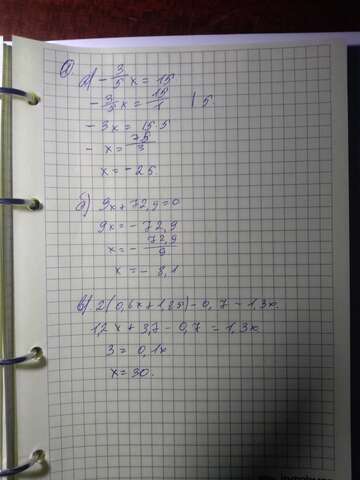 ①
а) - 3/5 x = 15
- 3/5 x = 15/1 | 5
- 3x = 15·5
- x = 75/3
x = - 25.
б) 9x + 72,9 = 0
9x = - 72,9
x = - 72,9/9
x = - 8,1
в) 2(0,6x + 1,85) - 0,7 = 1,3x.
1,2x + 3,7 - 0,7 = 1,3x
3 = 0,1x
x = 30.